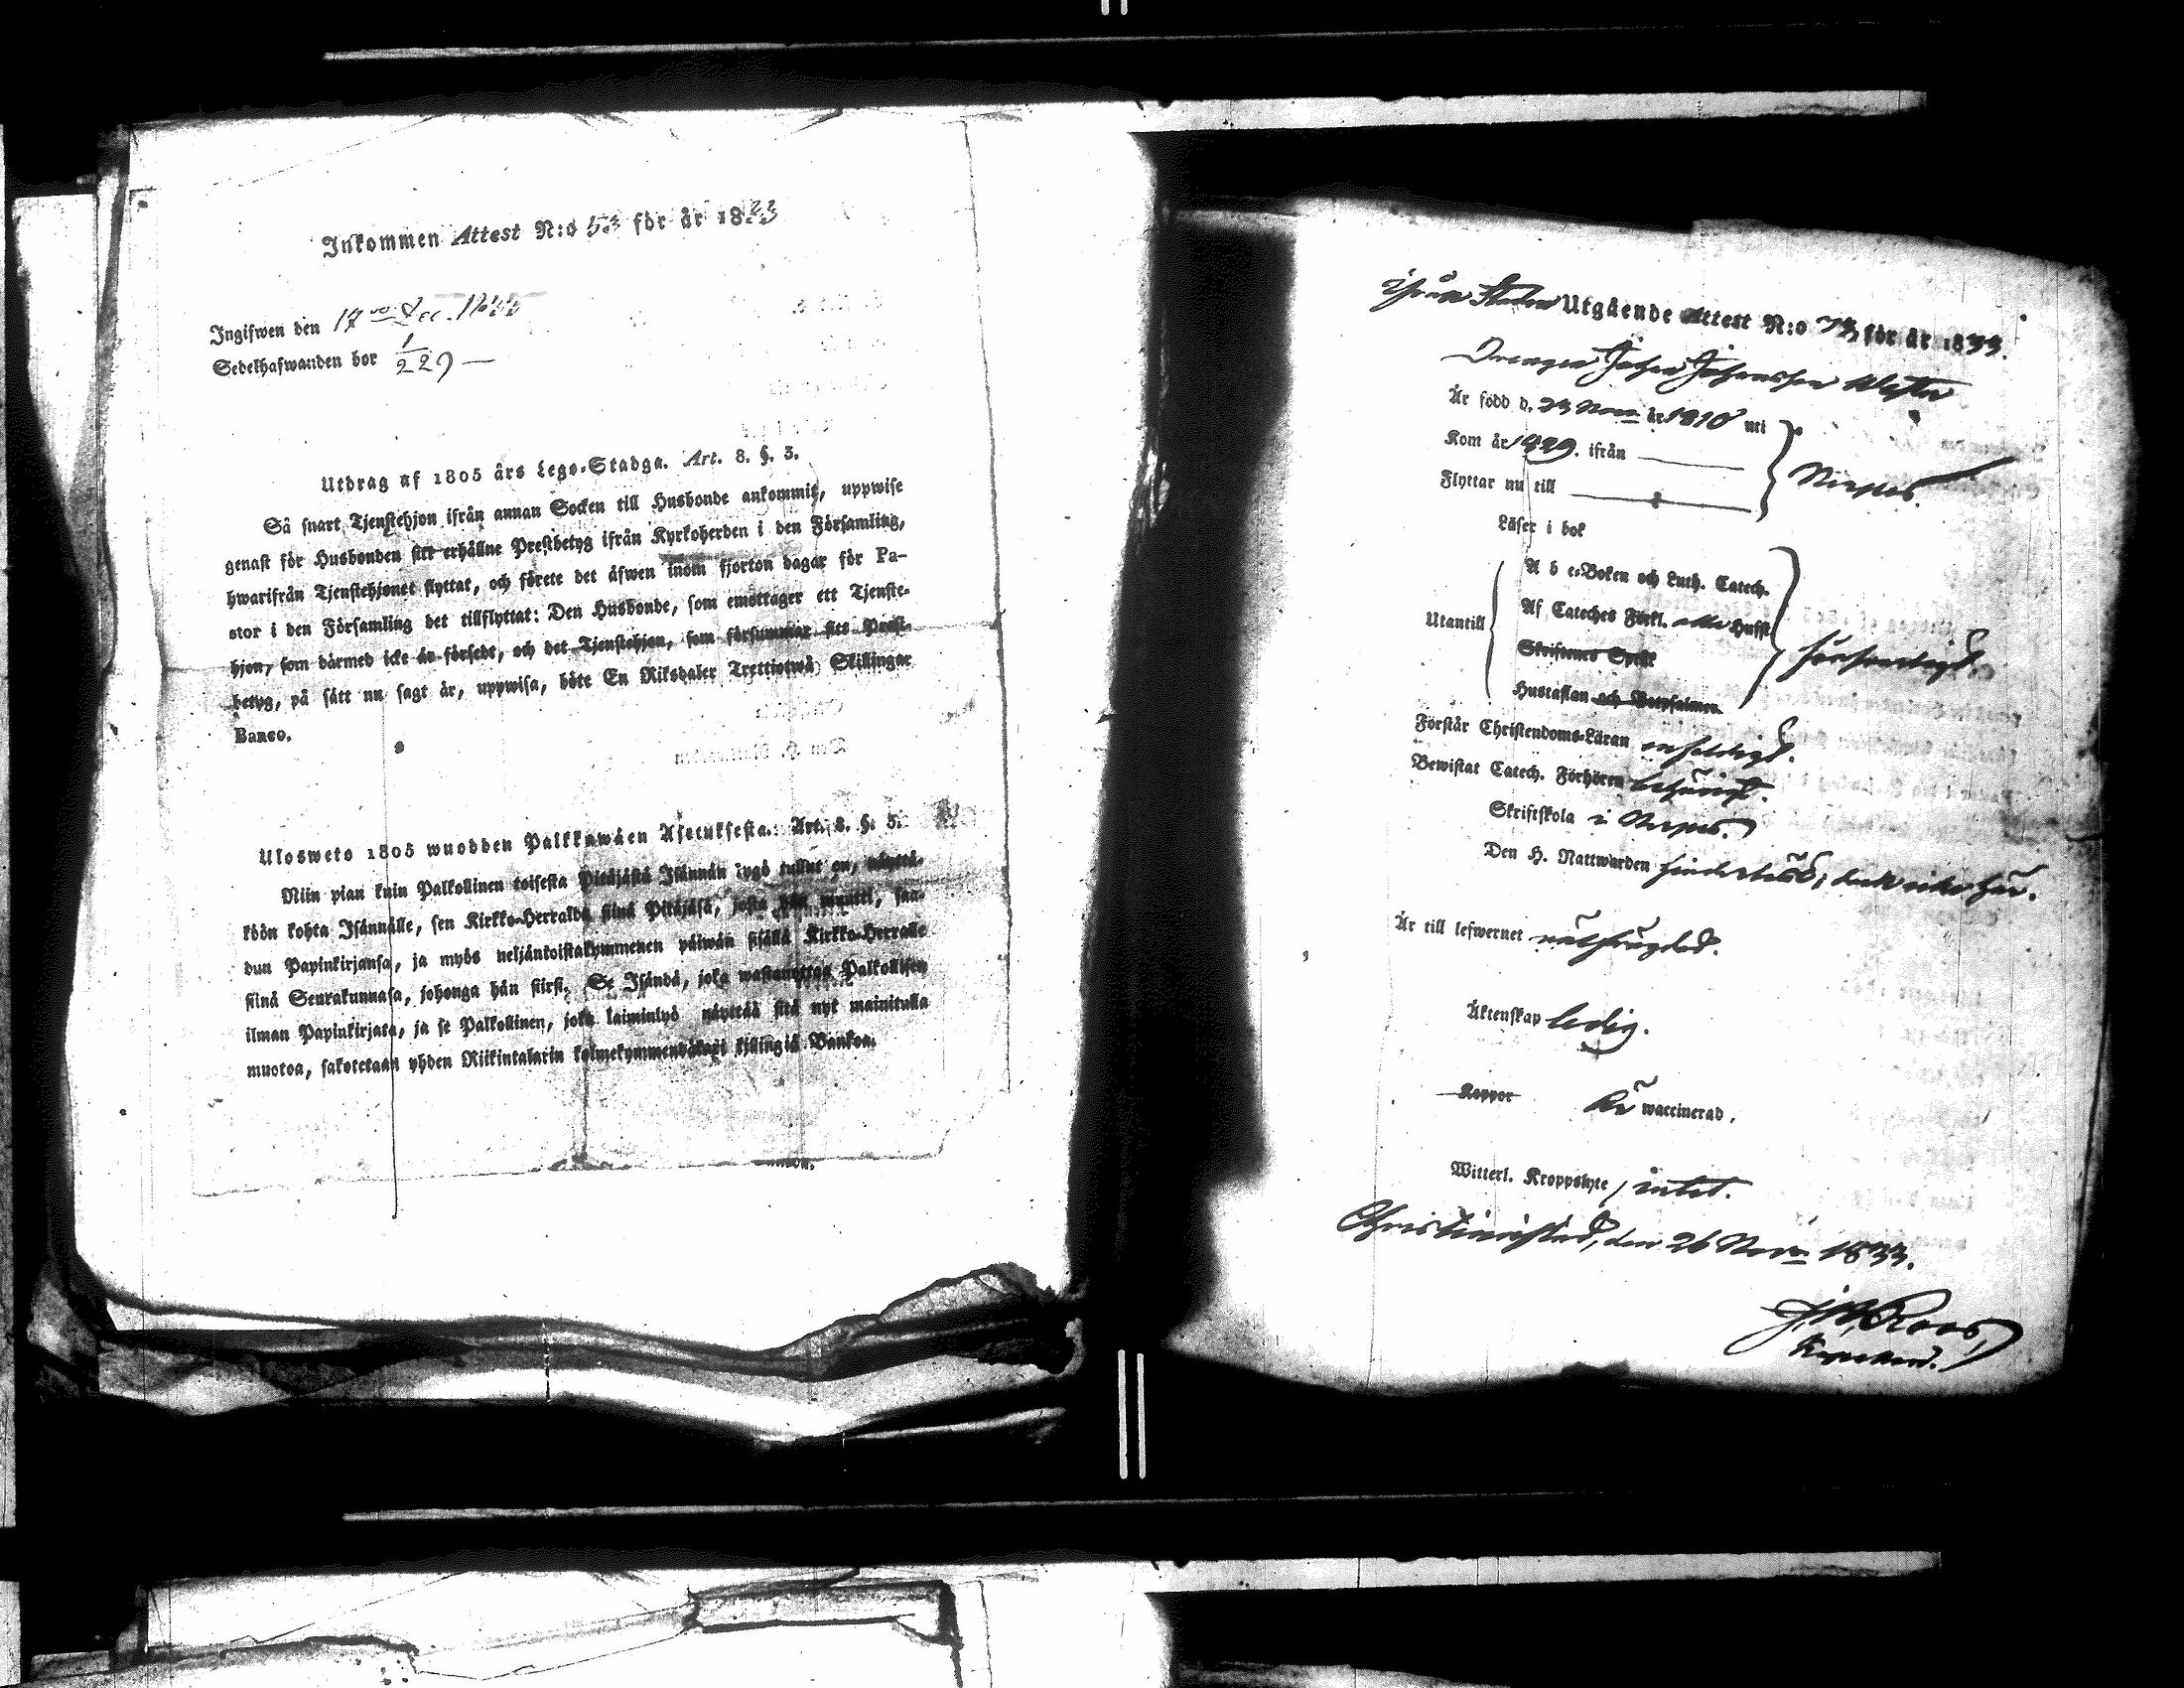 Inkommen Attest N:o 53 för år 1833
Ingifwen den 17 Dec. 1833
Sedelhafwanden bor 1/229
Utdrag af 1805 års Lego-Stadga. Art. 8. §. 3.
Så snart Tjenstehjon ifrån annan Socken till Husbonde ankommit, uppwise
genast för Husbonden sitt erhållne Prestbetyg ifrån Kyrkoherden i den Församling,
hwarifrån Tjenstehjonet flyttat, och förete det äfwen inom fjorton dagar för Pa-
stor i den Församling det tillflyttat: Den Husbonde, som emottager ett Tjenste-
hjon, som därmed icke är försedt, och det Tjenstehjon, som försummar sitt Prest-
betyg, på sätt nu sagt är, uppwisa, böte En Riksdaler Trettiotwå Skillingar
Banco.
Ulosweto 1805 wuodden Palkkawäen Asetuksesta. Art. 8. §. 3.
Niin pian kuin Palkollinen toisesta Pitäjästä Isännän tygö tullut on, näyttä-
köön kohta Isännälle, sen Kirkko-Herralda siinä Pitäjäsä, josta hän muutti, saa-
dun Papinkirjansa, ja myös neljäntoistakymmenen päiwän sisällä Kirkko-Herralle
siinä Seurakunnasa, johonga hän siirsi. Se Isändä, joka wastanottaa Palkollisen
ilman Papinkirjata, ja se Palkollinen, joka laiminlyö näyttää sitä nyt mainitulla
muotoa, sakotetaan yhden Riikintalarin kolmekymmendäkaxi killingiä Bankoa.
Utgående Attest N:o 73 för år 1833.
Drengen Johan Johansson
Är född d. 23 Nov. år 1810 uti
Kom år 1829. ifrån
Flyttar nu till
Nerpes.
Läser i bok
A b c-Boken och Luth. Catech.
Utantill
Af Cateches Förkl. alla Hufst
Skriftenes Språk
försvarligt.
Hustaflan och Botpsalmen
Förstår Christendoms-Läran enfaldigt.
Bewistat Catech. Förhören behörigt.
Skriftskola i Nerpes.
Den H. Nattwarden hinderslös, dock icke här.
Är till lefwernet oälskügdad.
Äktenskap ledig.
Koppor
är waccinerad,
Witterl. Kroppslyte, intet.
Christinæstad, den 26 Nov. 1833.
Roos,